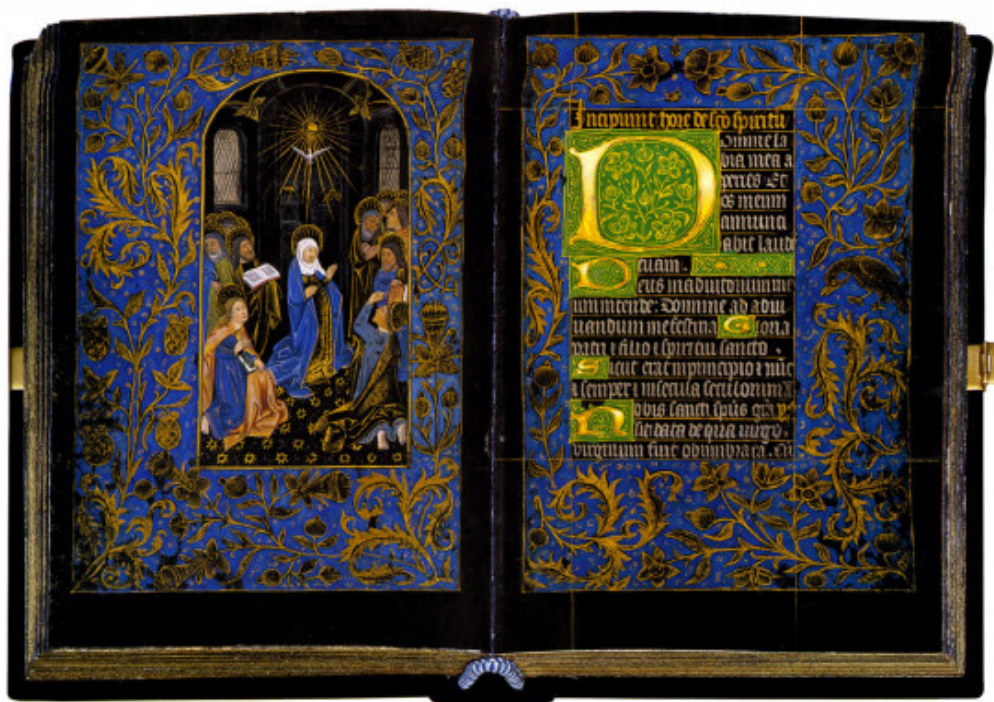 Incipiunt hore de sco spiritu
Domine la
bia mea a
peries Et
os meum
annunci
abit laud
em tuam.
Deus in adiutorium me
um intende. Domine ad adiu
uandum me festina Gloria
patri & filio & spiritui sancto.
Sicut erat in principio & nūc
& semper & in secula seculorum
Nobis sancti spūs gra
sit data de qua uirgo
uirginum fuit obumbrata